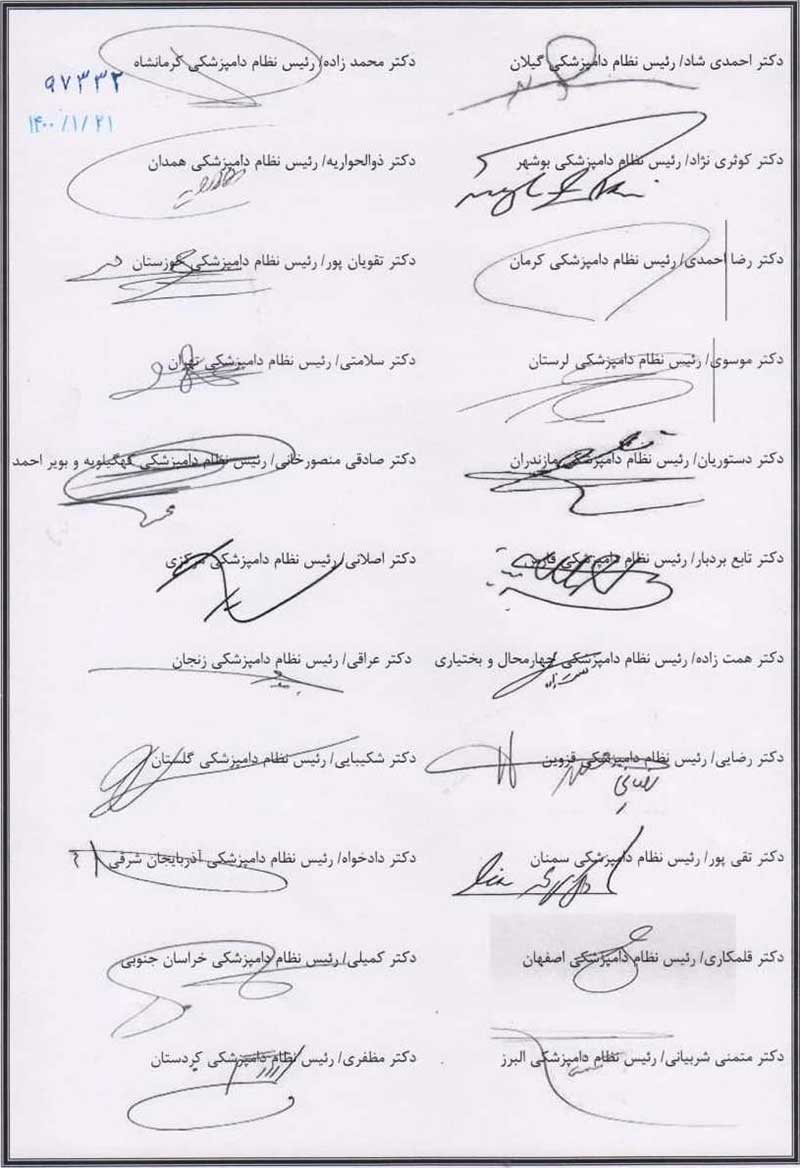 دکتر احمدی شاد/ رئیس نظام دامپزشکی گیلان
دکتر محمد زاده/ رئیس نظام دامپزشکی کرمانشاه
۹۷۳۳۲
۱۴۰۰/۱/۲۱
دکتر کوثری نژاد/ رئیس نظام دامپزشکی بوشهر
دکتر ذوالحواریه/ رئیس نظام دامپزشکی همدان
دکتر رضا احمدی/ رئیس نظام دامپزشکی کرمان
دکتر تقویان پور/ رئیس نظام دامپزشکی خوزستان
دکتر موسوی/ رئیس نظام دامپزشکی لرستان
دکتر سلامتی/ رئیس نظام دامپزشکی تهران
دکتر دستوریان/ رئیس نظام دامپزشکی مازندران
دکتر صادقی منصورخانی/ رئیس نظام دامپزشکی کهگیلویه و بویر احمد
دکتر تابع بردبار/ رئیس نظام دامپزشکی فارس
دکتر اصلانی/ رئیس نظام دامپزشکی مرکزی
دکتر همت زاده/ رئیس نظام دامپزشکی چهارمحال و بختیاری
دکتر عراقی/ رئیس نظام دامپزشکی زنجان
دکتر رضایی/ رئیس نظام دامپزشکی قزوین
دکتر شکیبایی/ رئیس نظام دامپزشکی گلستان
دکتر تقی پور/ رئیس نظام دامپزشکی سمنان
دکتر دادخواه/ رئیس نظام دامپزشکی آذربایجان شرقی
دکتر قلمکاری/ رئیس نظام دامپزشکی اصفهان
دکتر کمیلی/ رئیس نظام دامپزشکی خراسان جنوبی
دکتر متمنی شربیانی/ رئیس نظام دامپزشکی البرز
دکتر مظفری/ رئیس نظام دامپزشکی کردستان